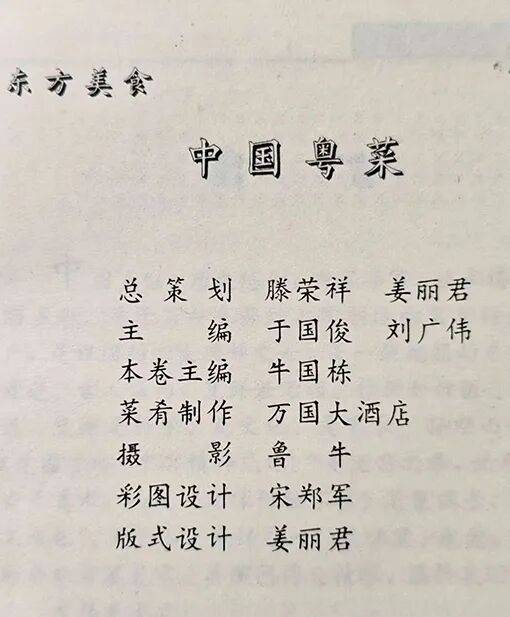 东方美食
中国粤菜
总策划 滕荣祥 姜丽君
主编 于国俊 刘广伟
本卷主编 牛国栋
菜肴制作 万国大酒店
摄影 鲁牛
彩图设计 宋郑军
版式设计 姜丽君